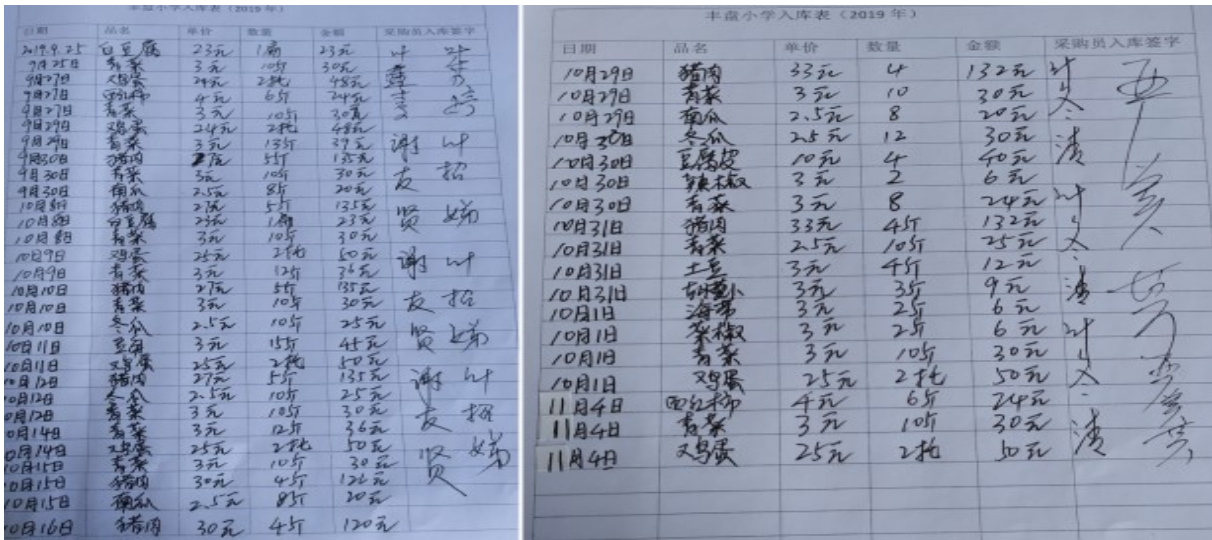 丰盘小学入库表（2019 年）
日期 品名 单价 数量 金额 采购员入库签字
2019.9.25 白豆腐 23元 1扇 23元
9月25日 青菜 3元 10斤 30元
9月27日 鸡蛋 24元 2托 48元
9月27日 西红柿 4元 6斤 24元
9月27日 青菜 3元 10斤 30元
9月29日 鸡蛋 24元 2托 48元
9月29日 青菜 3元 13斤 39元
9月30日 猪肉 27元 5斤 135元
9月30日 青菜 3元 10斤 30元
9月30日 南瓜 2.5元 8斤 20元
10月8日 猪肉 27元 5斤 135元
10月8日 白豆腐 23元 1扇 23元
10月8日 青菜 3元 10斤 30元
10月9日 鸡蛋 25元 2托 50元
10月9日 青菜 3元 12斤 36元
10月10日 猪肉 27元 5斤 135元
10月10日 青菜 3元 10斤 30元
10月10日 冬瓜 2.5元 10斤 25元
10月11日 豆角 3元 15斤 45元
10月11日 鸡蛋 25元 2托 50元
10月12日 猪肉 27元 5斤 135元
10月12日 冬瓜 2.5元 10斤 25元
10月12日 青菜 3元 10斤 30元
10月14日 青菜 3元 12斤 36元
10月14日 鸡蛋 25元 2托 50元
10月15日 青菜 3元 10斤 30元
10月15日 猪肉 30元 4斤
10月15日 南瓜 2.5元 8斤 20元
10月16日 猪肉 30元 4斤 120元
丰盘小学入库表（2019 年）
日期 品名 单价 数量 金额 采购员入库签字
10月29日 猪肉 33元 4 132元
10月29日 青菜 3元 10 30元
10月29日 南瓜 2.5元 8 20元
10月30日 冬瓜 2.5元 12 30元
10月30日 豆腐皮 10元 4 40元
10月30日 辣椒 3元 2 6元
10月30日 青菜 3元 8 24元
10月31日 猪肉 33元 4斤 132元
10月31日 青菜 2.5元 10斤 25元
10月31日 土豆 3元 4斤 12元
10月31日 3元 3斤 9元
10月1日 海带 3元 2斤 6元
10月1日 菜椒 3元 2斤 6元
10月1日 青菜 3元 10斤 30元
10月1日 鸡蛋 25元 2托 50元
11月4日 西红柿 4元 6斤 24元
11月4日 青菜 3元 10斤 30元
11月4日 鸡蛋 25元 2托 50元